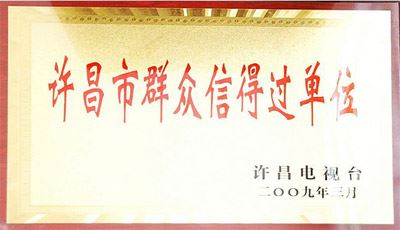 许昌市群众信得过单位
许昌电视台
二〇〇九年三月